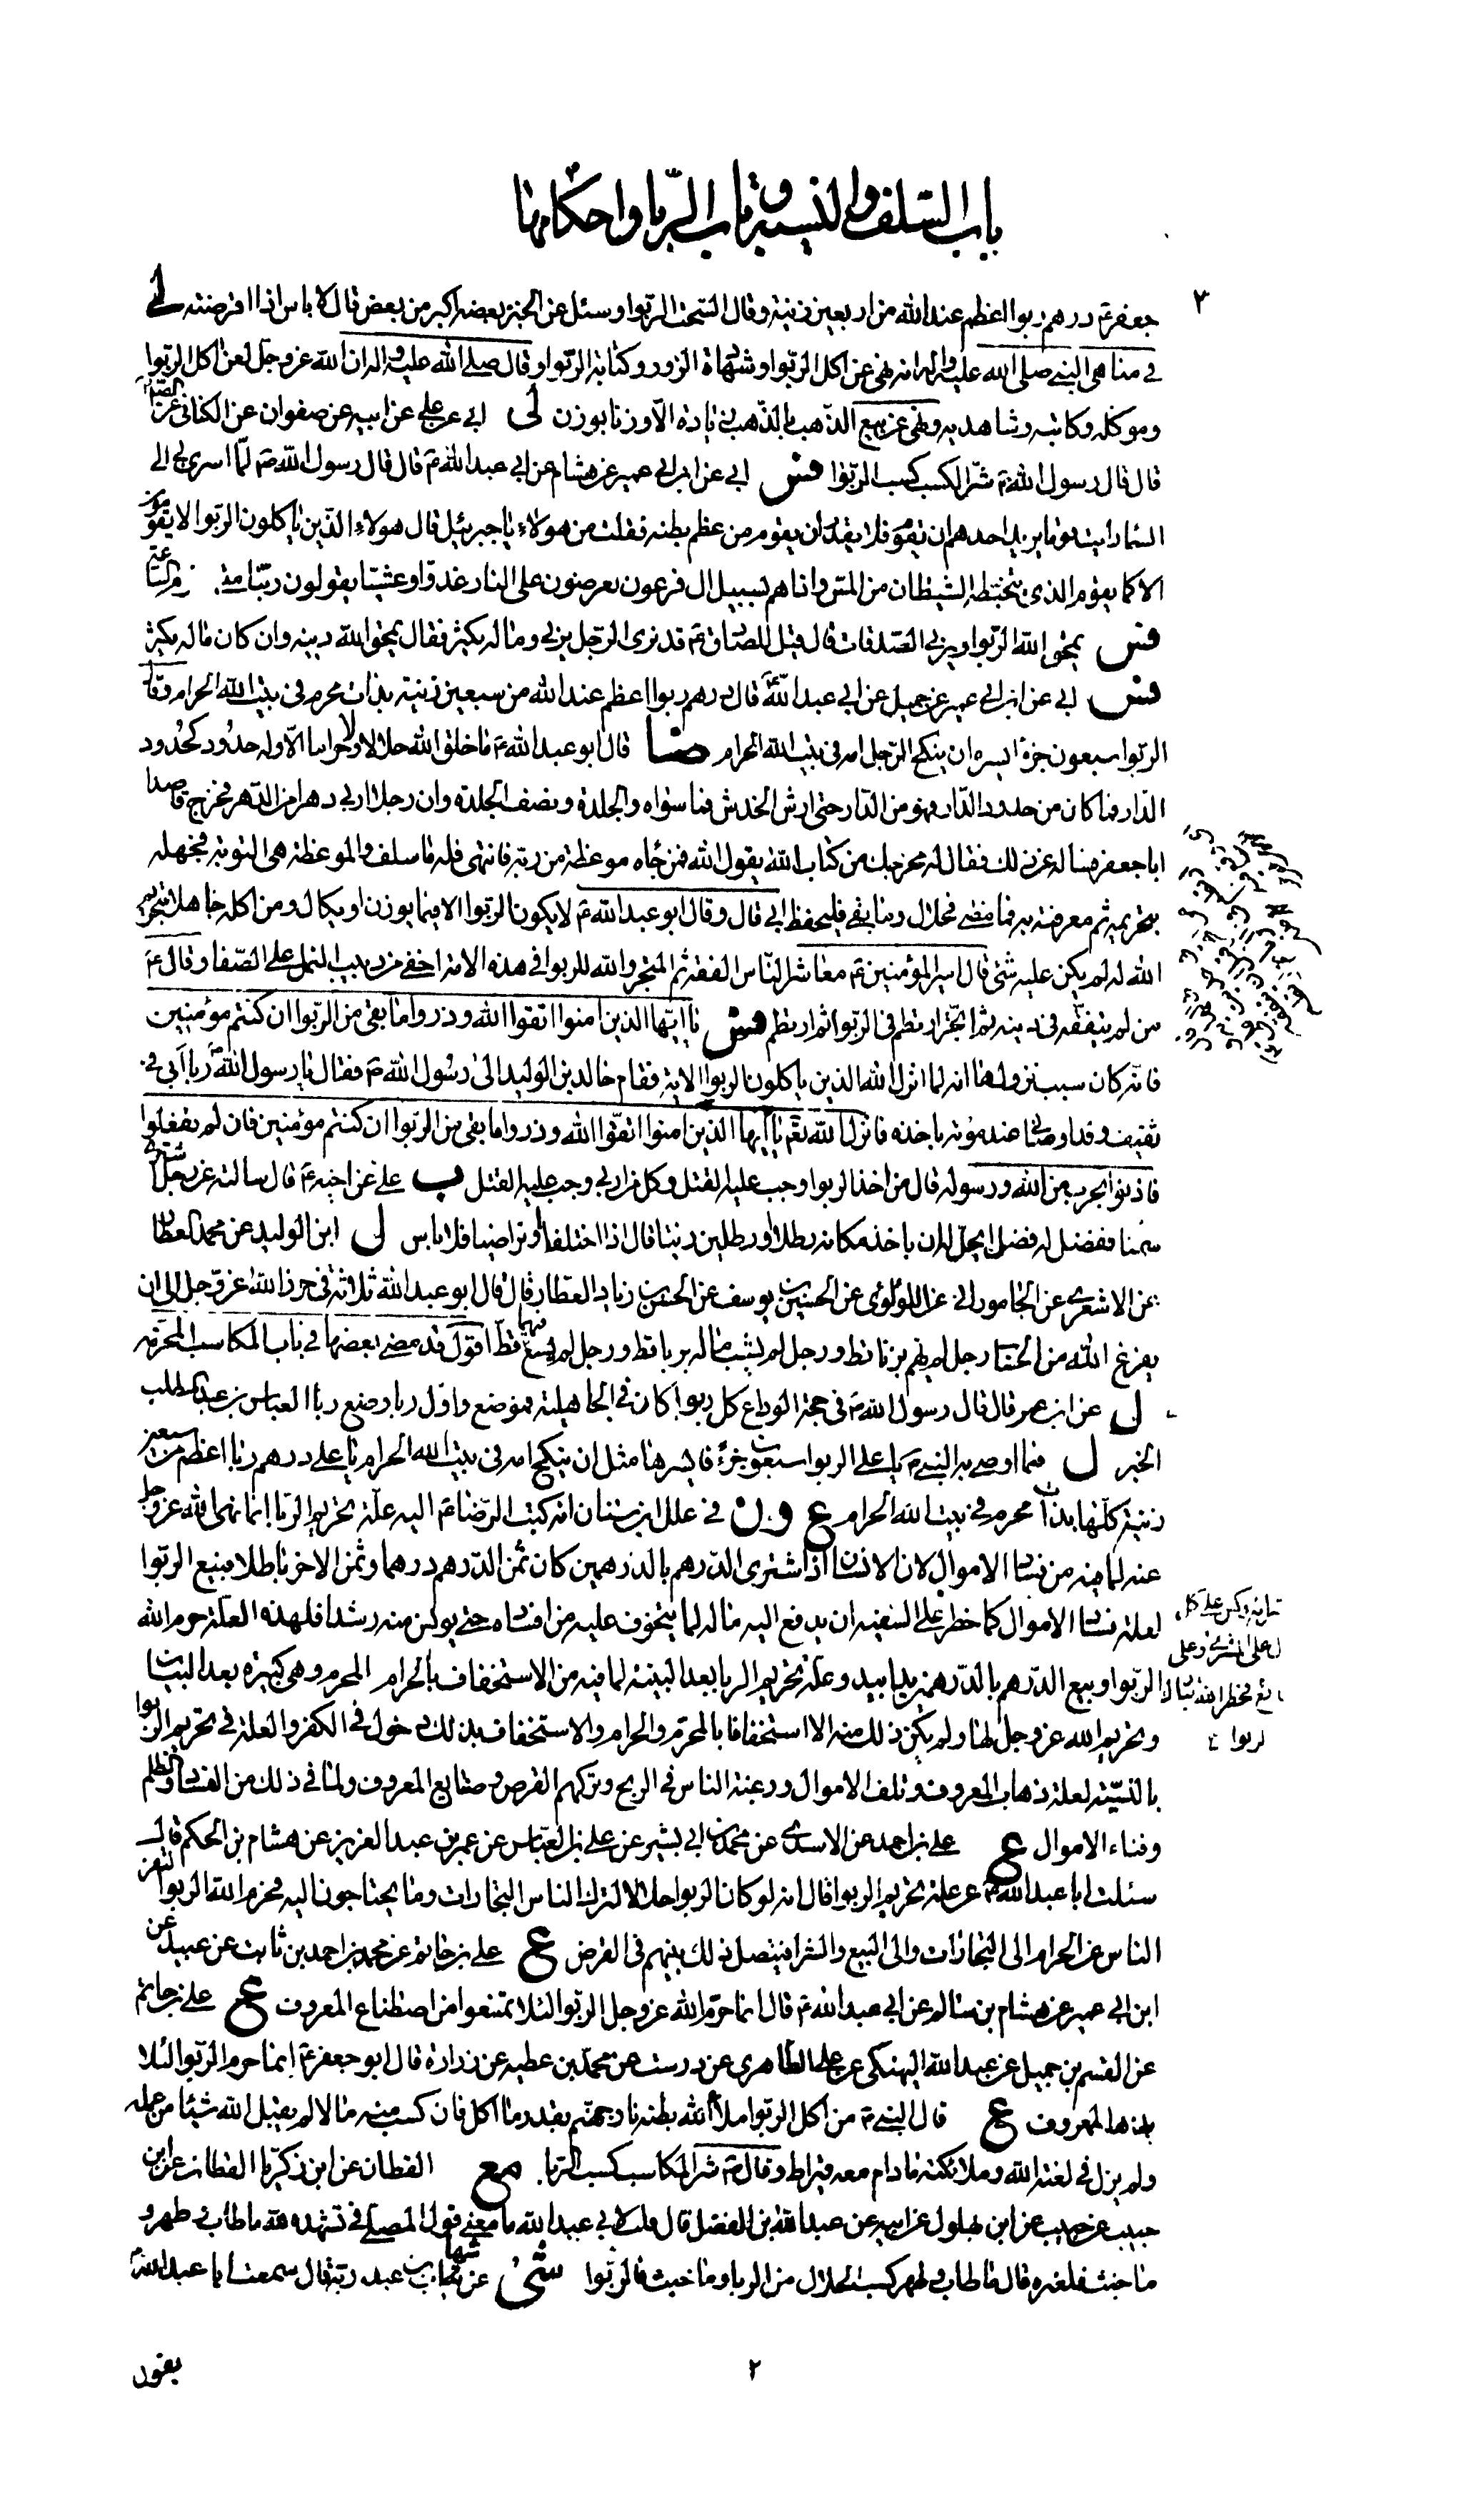 باب السلف والنسية وباب الربا واحكامها
٣
جعفر ع درهم ربوا اعظم عند الله من اربعين زنية وقال السحت الربوا وسئل عن الخبز بعضه اكبر من بعض قال لا باس اذا اقرضته لى
فى مناهى النبى صلى الله عليه واله انه نهى عن اكل الربوا وشهادة الزور وكتابة الربوا وقال صلى الله عليه واله ان الله عز وجل لعن اكل الربوا
وموكله وكاتبه وشاهديه ونهى عن بيع الذهب بالذهب زيادة الا وزنا بوزن لى ابى عن على عن ابيه عن صفوان عن الكنانى عن الصادق
قال قال رسول الله ص شر الكسب كسب الربوا فس ابى عن ابن ابى عمير عن هشام عن ابى عبد الله ع قال قال رسول الله ص لما اسرى بى الى
السماء رايت قوما يريد احدهم ان يقوم فلا يقدر ان يقوم من عظم بطنه فقلت من هولاء يا جبرئيل قال هولاء الذين ياكلون الربوا لا يقومون
الا كما يقوم الذى يتخبطه الشيطان من المس واذا هم بسبيل ال فرعون يعرضون على النار غدوا وعشيا يقولون ربنا متى تقوم الساعة
فس يمحق الله الربوا ويربى الصدقات قال قيل للصادق ع قد نرى الرجل يربى وماله يكثر فقال يمحق الله دينه وان كان ماله يكثر
فس ابى عن ابن ابى عمير عن جميل عن ابى عبد الله ع قال درهم ربوا اعظم عند الله من سبعين زنية بذات محرم فى بيت الله الحرام وقال
الربوا سبعون جزء ايسره ان ينكح الرجل امه فى بيت الله الحرام ضا قال ابو عبد الله ع ما خلق الله حلالا ولا حراما الا وله حدود كحدود
الدار فما كان من حدود الدار فهو من الدار حتى ارش الخدش فما سواه والجلدة ونصف الجلدة وان رجلا اربى دهرا من الدهر فخرج قاصدا
ابا جعفر فساله عن ذلك فقال له مخرجك من كتاب الله يقول الله فمن جاءه موعظة من ربه فانتهى فله ما سلف والموعظة هى التوبة فجهله
بتحريمه ثم معرفته به فما مضى فحلال وما بقى فليحفظ ابى قال وقال ابو عبد الله ع لا يكون الربوا الا فيما يوزن او يكال ومن اكله جاهلا بتحريم
الله له لم يكن عليه شئ قال امير المؤمنين ع معاشر الناس الفقه ثم المتجر والله للربوا فى هذه الامة اخفى من دبيب النمل على الصفا وقال ع
من لم يتفقه فى دينه ثم اتجر ارتطم فى الربوا ثم ارتطم فس يا ايها الذين امنوا اتقوا الله وذروا ما بقى من الربوا ان كنتم مؤمنين
فانه كان سبب نزولها انه لما انزل الله الذين ياكلون الربوا الاية فقام خالد بن الوليد الى رسول الله ص فقال يا رسول الله ربا ابى فى
ثقيف وقد اوصانى عند موته باخذه فانزل الله تعم يا ايها الذين امنوا اتقوا الله وذروا ما بقى من الربوا ان كنتم مؤمنين فان لم تفعلوا
فاذنوا بحرب من الله ورسوله قال من اخذ الربوا وجب عليه القتل وكل من اربى وجب عليه القتل ب على عن اخيه ع قال سالته عن رجل اشترى
سمنا ففضل له فضل ايحل له ان ياخذ مكانه رطلا او رطلين زيتا قال اذا اختلفا وتراضيا فلا باس ل ابن الوليد عن محمد العطار
عن الاشعرى عن الجامورانى عن اللولوئى عن الحسين بن يوسف عن الحسن بن زياد العطار قال قال ابو عبد الله ثلاثة فى حرز الله عز وجل الى ان
يفرغ الله من الحساب رجل لم يهم بزنا قط ورجل لم يشب ماله بربا قط ورجل لم يسع فيهما قط اقول قد مضى بعضها فى باب المكاسب المحرمة
ل عن ابن عمر قال قال رسول الله ص فى حجة الوداع كل ربوا كان فى الجاهلية فموضع واول ربا وضع ربا العباس بن عبد المطلب
الخبر ل فيما اوصى به النبى ص يا على الربوا سبعون جزء فايسرها مثل ان ينكح امه فى بيت الله الحرام يا على درهم ربا اعظم من سبعين
زنية كلها بذات محرم فى بيت الله الحرام ع ون فى علل ابن سنان انه كتب الرضا ع اليه علة تحريم الربا انما نهى الله عز وجل
عنه لما فيه من فساد الاموال لان الانسان اذا اشترى الدرهم بالدرهمين كان ثمن الدرهم درهما وثمن الاخر باطلا فبيع الربوا
لعلة فساد الاموال كما حظر على السفيه ان يدفع اليه ماله لما يتخوف عليه من افساده حتى يونس منه رشدا فلهذه العلة حرم الله
الربوا وبيع الدرهم بالدرهمين يدا بيد وعلة تحريم الربا بعد البينة لما فيه من الاستخفاف بالحرام المحرم وهى كبيرة بعد البيان
وتحريم الله عز وجل لها ولم يكن ذلك منه الا استخفافا بالمحرم والحرام والاستخفاف بذلك دخول فى الكفر والعلة فى تحريم الربوا
بالنسية لعلة ذهاب المعروف وتلف الاموال ورغبة الناس فى الربح وتركهم القرض وصنايع المعروف ولما فى ذلك من الفساد والظلم
وفناء الاموال ع على بن احمد عن الاسدى عن محمد بن ابى بشير عن على بن العباس عن عمر بن عبد العزيز عن هشام بن الحكم قال
سئلت ابا عبد الله ع عن علة تحريم الربوا قال انه لو كان الربوا حلالا لترك الناس التجارات وما يحتاجون اليه فحرم الله الربوا لتفر
الناس عن الحرام الى التجارات والى البيع والشراء فيتصل ذلك بينهم فى القرض ع على بن حاتم عن محمد بن احمد بن ثابت عن عبيد عن
ابن ابى عمير عن هشام بن سالم عن ابى عبد الله ع قال انما حرم الله عز وجل الربوا لئلا تمتنعوا من اصطناع المعروف ع على بن حاتم
عن القسم بن جميل عن عبد الله النهيكى عن على الطاهرى عن درست عن محمد بن عطيه عن زرارة قال ابو جعفر ع انما حرم الربوا لئلا
يذهب المعروف ع قال النبى ص من اكل الربوا ملأ الله بطنه نار جهنم بقدر ما اكل فان كسب منه مالا لم يقبل الله شيئا من عمله
ولم يزل فى لعنة الله وملائكته مادام معه قيراط وقال ص شر المكاسب كسب الربا. مع القطان عن ابن زكريا القطان عن ابن
حبيب عن ابن بهلول عن ابيه عن عبد الله بن الفضل قال قلت لابى عبد الله ما معنى قول المصلى فى تشهده لله ما طاب وطهر و
ما خبث فلغيره قال ما طاب وطهر كسب الحلال من الربا وما خبث فالربوا شئ عن شهاب بن عبد ربه قال سمعت ابا عبد الله ع
لربوا
٢
يقول